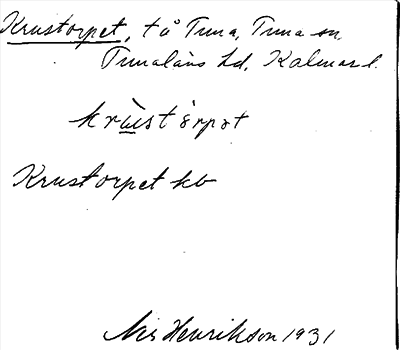 Krustorpet, tå Tuna, Tuna sn,
Tunaläns hd, Kalmar l.
krùstò̀rpət
Krustorpet kb
Nis Henrikson 1931